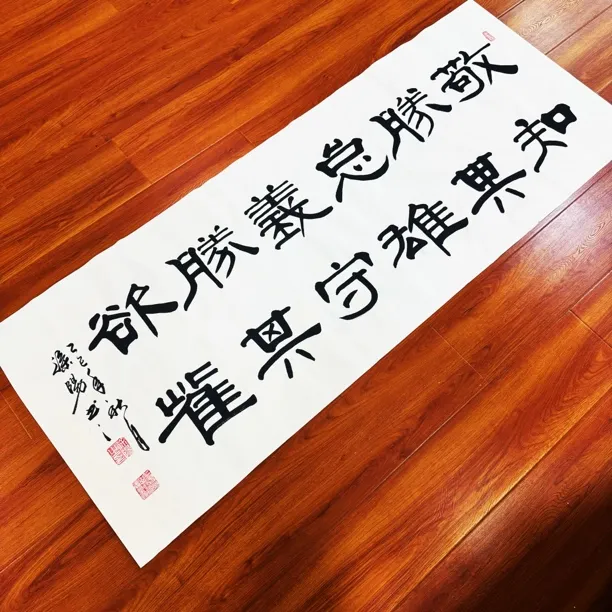 敬勝怠義勝欲
知其雄守其雌
乙巳年秋月
書